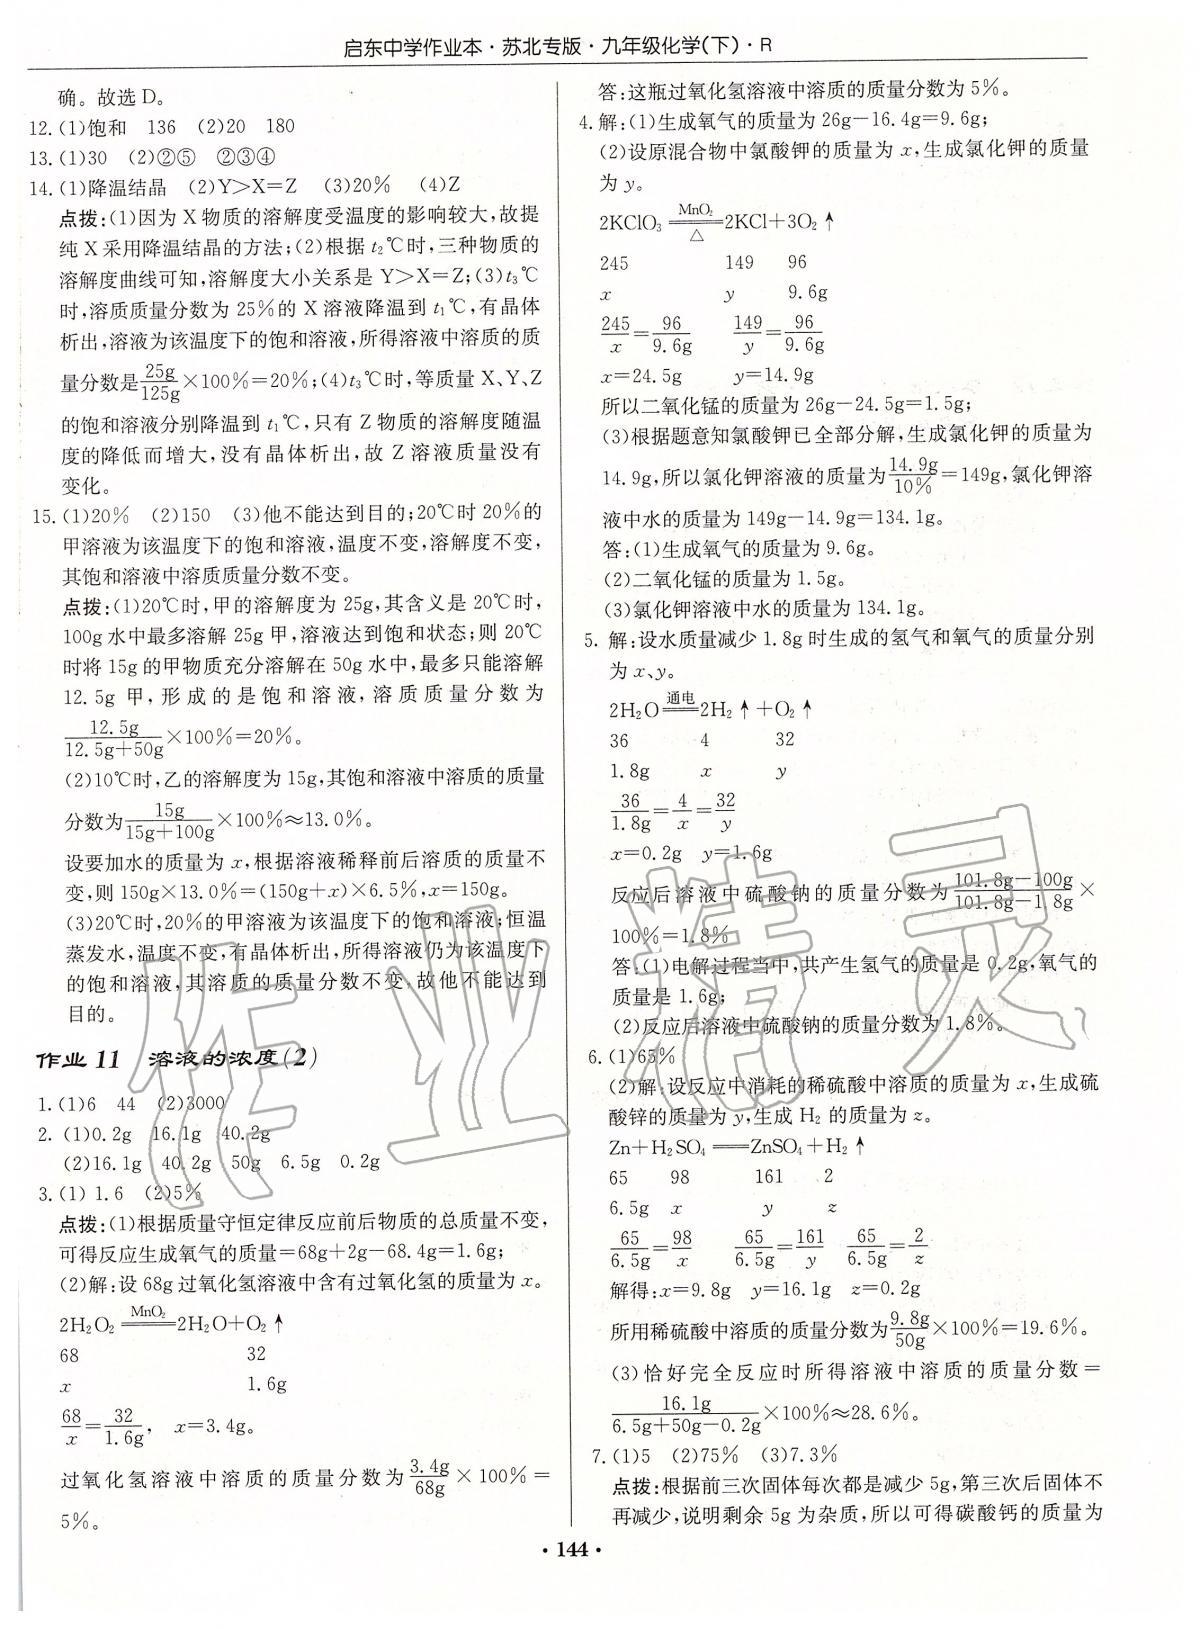 启东中学作业本·苏北专版·九年级化学(下)·R
确。故选D。
12.(1)饱和 136 (2)20 180
13.(1)30 (2)②⑤ ②③④
14.(1)降温结晶 (2)Y>X=Z (3)20% (4)Z
点拨:(1)因为X物质的溶解度受温度的影响较大,故提
纯X采用降温结晶的方法;(2)根据t₂℃时,三种物质的
溶解度曲线可知,溶解度大小关系是Y>X=Z;(3)t₃℃
时,溶质质量分数为25%的X溶液降温到t₁℃,有晶体
析出,溶液为该温度下的饱和溶液,所得溶液中溶质的质
量分数是25g/125g×100%=20%;(4)t₃℃时,等质量X、Y、Z
的饱和溶液分别降温到t₁℃,只有Z物质的溶解度随温
度的降低而增大,没有晶体析出,故Z溶液质量没有
变化。
15.(1)20% (2)150 (3)他不能达到目的;20℃时20%的
甲溶液为该温度下的饱和溶液,温度不变,溶解度不变,
其饱和溶液中溶质质量分数不变。
点拨:(1)20℃时,甲的溶解度为25g,其含义是20℃时,
100g水中最多溶解25g甲,溶液达到饱和状态;则20℃
时将15g的甲物质充分溶解在50g水中,最多只能溶解
12.5g甲,形成的是饱和溶液,溶质质量分数为
12.5g/12.5g+50g×100%=20%。
(2)10℃时,乙的溶解度为15g,其饱和溶液中溶质的质量
分数为15g/15g+100g×100%≈13.0%。
设要加水的质量为x,根据溶液稀释前后溶质的质量不
变,则150g×13.0%=(150g+x)×6.5%,x=150g。
(3)20℃时,20%的甲溶液为该温度下的饱和溶液;恒温
蒸发水,温度不变,有晶体析出,所得溶液仍为该温度下
的饱和溶液,其溶质的质量分数不变,故他不能达到
目的。
作业11 溶液的浓度(2)
1.(1)6 44 (2)3000
2.(1)0.2g 16.1g 40.2g
(2)16.1g 40.2g 50g 6.5g 0.2g
3.(1)1.6 (2)5%
点拨:(1)根据质量守恒定律反应前后物质的总质量不变,
可得反应生成氧气的质量=68g+2g-68.4g=1.6g;
(2)解:设68g过氧化氢溶液中含有过氧化氢的质量为x。
2H₂O₂ MnO₂══2H₂O+O₂↑
68 32
x 1.6g
68/x=32/1.6g, x=3.4g。
过氧化氢溶液中溶质的质量分数为3.4g/68g×100%=
5%。
答:这瓶过氧化氢溶液中溶质的质量分数为5%。
4.解:(1)生成氧气的质量为26g-16.4g=9.6g;
(2)设原混合物中氯酸钾的质量为x,生成氯化钾的质量
为y。
2KClO₃ MnO₂══△ 2KCl+3O₂↑
245 149 96
x y 9.6g
245/x=96/9.6g 149/y=96/9.6g
x=24.5g y=14.9g
所以二氧化锰的质量为26g-24.5g=1.5g;
(3)根据题意知氯酸钾已全部分解,生成氯化钾的质量为
14.9g,所以氯化钾溶液的质量为14.9g/10%=149g,氯化钾溶
液中水的质量为149g-14.9g=134.1g。
答:(1)生成氧气的质量为9.6g。
(2)二氧化锰的质量为1.5g。
(3)氯化钾溶液中水的质量为134.1g。
5.解:设水质量减少1.8g时生成的氢气和氧气的质量分别
为x、y。
2H₂O 通电══2H₂↑+O₂↑
36 4 32
1.8g x y
36/1.8g=4/x=32/y
x=0.2g y=1.6g
反应后溶液中硫酸钠的质量分数为101.8g-100g/101.8g-1.8g×
100%=1.8%
答:(1)电解过程当中,共产生氢气的质量是0.2g,氧气的
质量是1.6g;
(2)反应后溶液中硫酸钠的质量分数为1.8%。
6.(1)65%
(2)解:设反应中消耗的稀硫酸中溶质的质量为x,生成硫
酸锌的质量为y,生成H₂的质量为z。
Zn+H₂SO₄══ZnSO₄+H₂↑
65 98 161 2
6.5g x y z
65/6.5g=98/x 65/6.5g=161/y 65/6.5g=2/z
解得:x=9.8g y=16.1g z=0.2g
所用稀硫酸中溶质的质量分数为9.8g/50g×100%=19.6%。
(3)恰好完全反应时所得溶液中溶质的质量分数=
16.1g/6.5g+50g-0.2g×100%≈28.6%。
7.(1)5 (2)75% (3)7.3%
点拨:根据前三次固体每次都是减少5g,第三次后固体不
再减少,说明剩余5g为杂质,所以可得碳酸钙的质量为
·144·
作业精灵